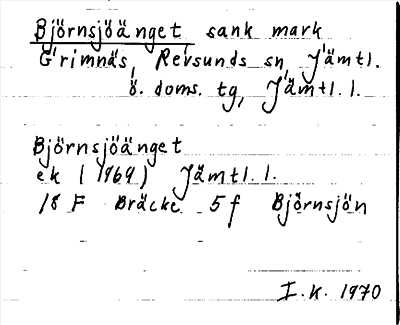 Björnsjöänget sank mark
Grimnäs, Revsunds sn, Jämtl.
ö. doms. tg, Jämtl. l.
Björnsjöänget
ek (1969) Jämtl. l.
18 F Bräcke 5 f Björnsjön
I. K. 1970